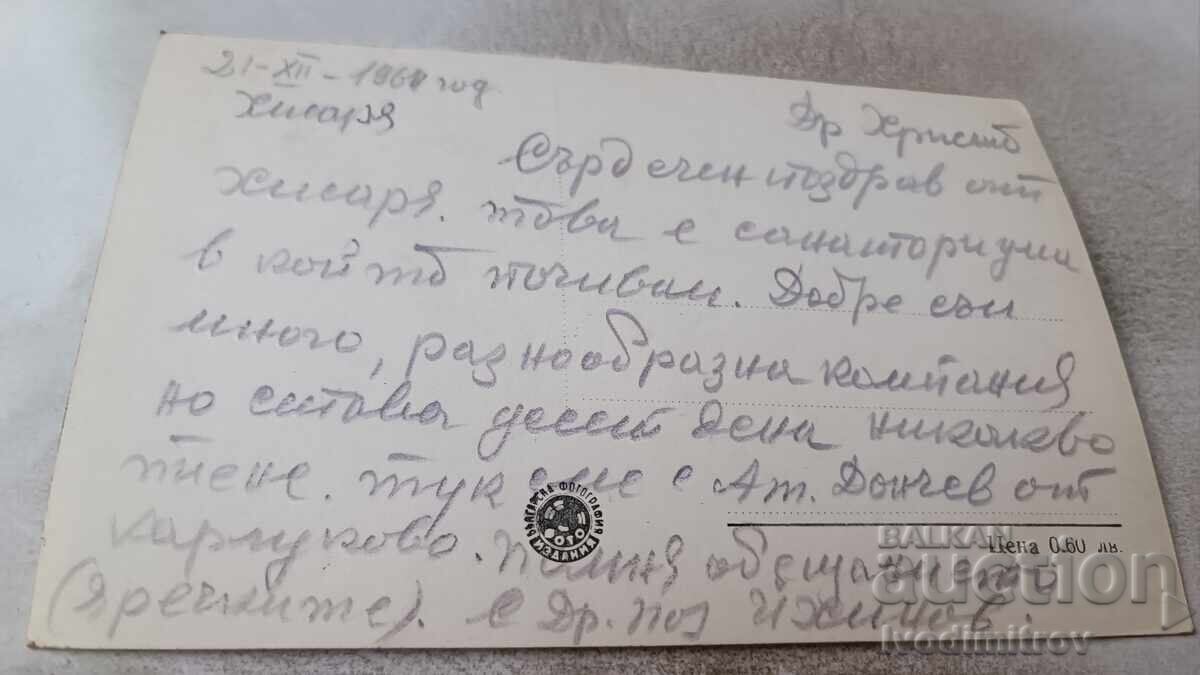 21-XII-1961 год
Хисаря
Др Христо
Сърдечен поздрав от
Хисаря. това е санаториума
в който почивам. Добре съм
много, разнообразна компания
но става десет дена никакво
пиене. тук сме с Ат. Дончев от
карлуково. Помня обещанието
(яречките). С Др. поз
БЪЛГАРСКА ФОТОГРАФИЯ
ФОТО
Цена 0.60 лв.
BALKAN
auction
ivodimitrov